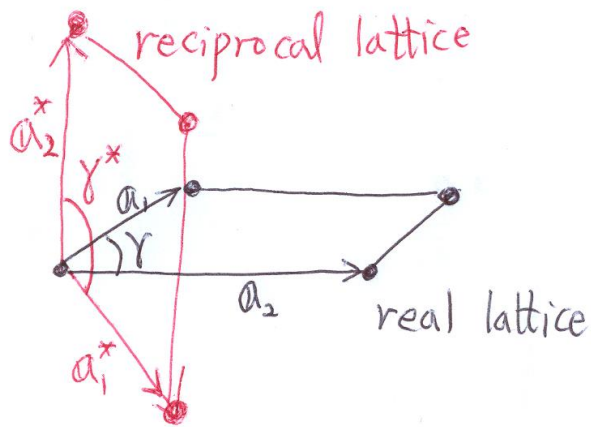 reciprocal lattice
a₂*
γ*
a₁
γ
a₂
real lattice
a₁*